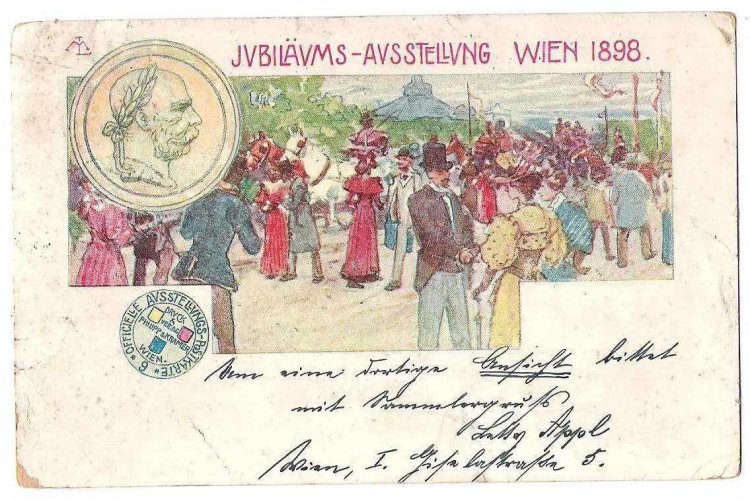 JVBILÄVMS-AVSSTELLVNG WIEN 1898.
* OFFICIELLE AVSSTELLVNGS-POSTKARTE * 6
DRVCK & VERLAG
PHILIPP & KRAMER
WIEN
Um eine dortige Ansicht bittet
mit Sammlergruß
Betty Appl
Wien, I. Giselastraße 5.